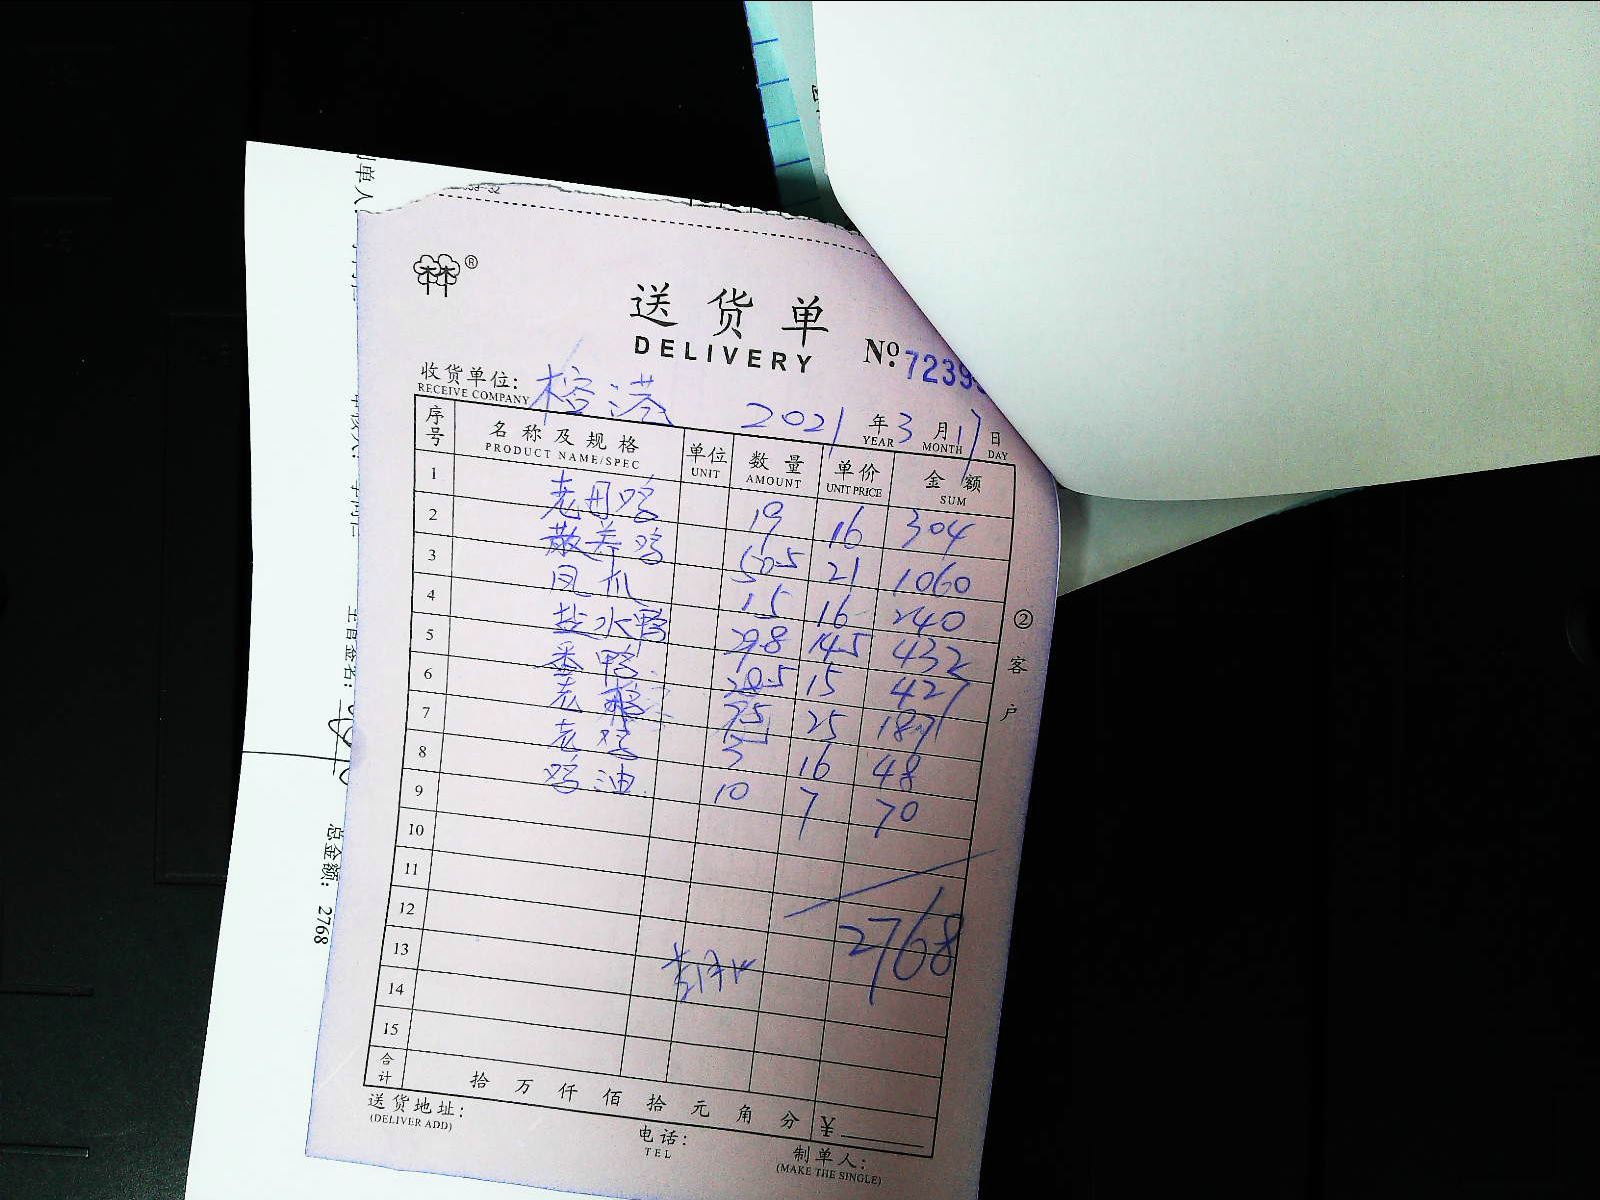 送货单
DELIVERY
No. 7239
收货单位: 榕港 2021 年 3 月 17 日
RECEIVE COMPANY YEAR MONTH DAY
序号 名称及规格 单位 数量 单价 金额
PRODUCT NAME/SPEC UNIT AMOUNT UNIT PRICE SUM
1 老母鸡 19 16 304
2 散养鸡 50.5 21 1060
3 凤爪 15 16 240
4 盐水鸭 29.8 14.5 432
5 番鸭 28.5 15 427
6 老 7.5 25 187
7 老鸡 3 16 48
8 鸡油 10 7 70
9
10
11
12 2768
13
14
15
合计 拾 万 仟 佰 拾 元 角 分 ¥
送货地址:
(DELIVER ADD)
电话:
TEL
制单人:
(MAKE THE SINGLE)
② 客户
主管签名:
总金额: 2768